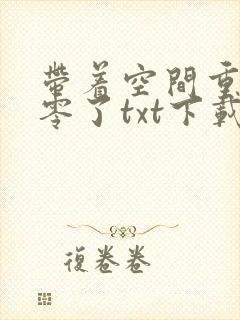 帶着空間重
零了txt下載
復卷卷